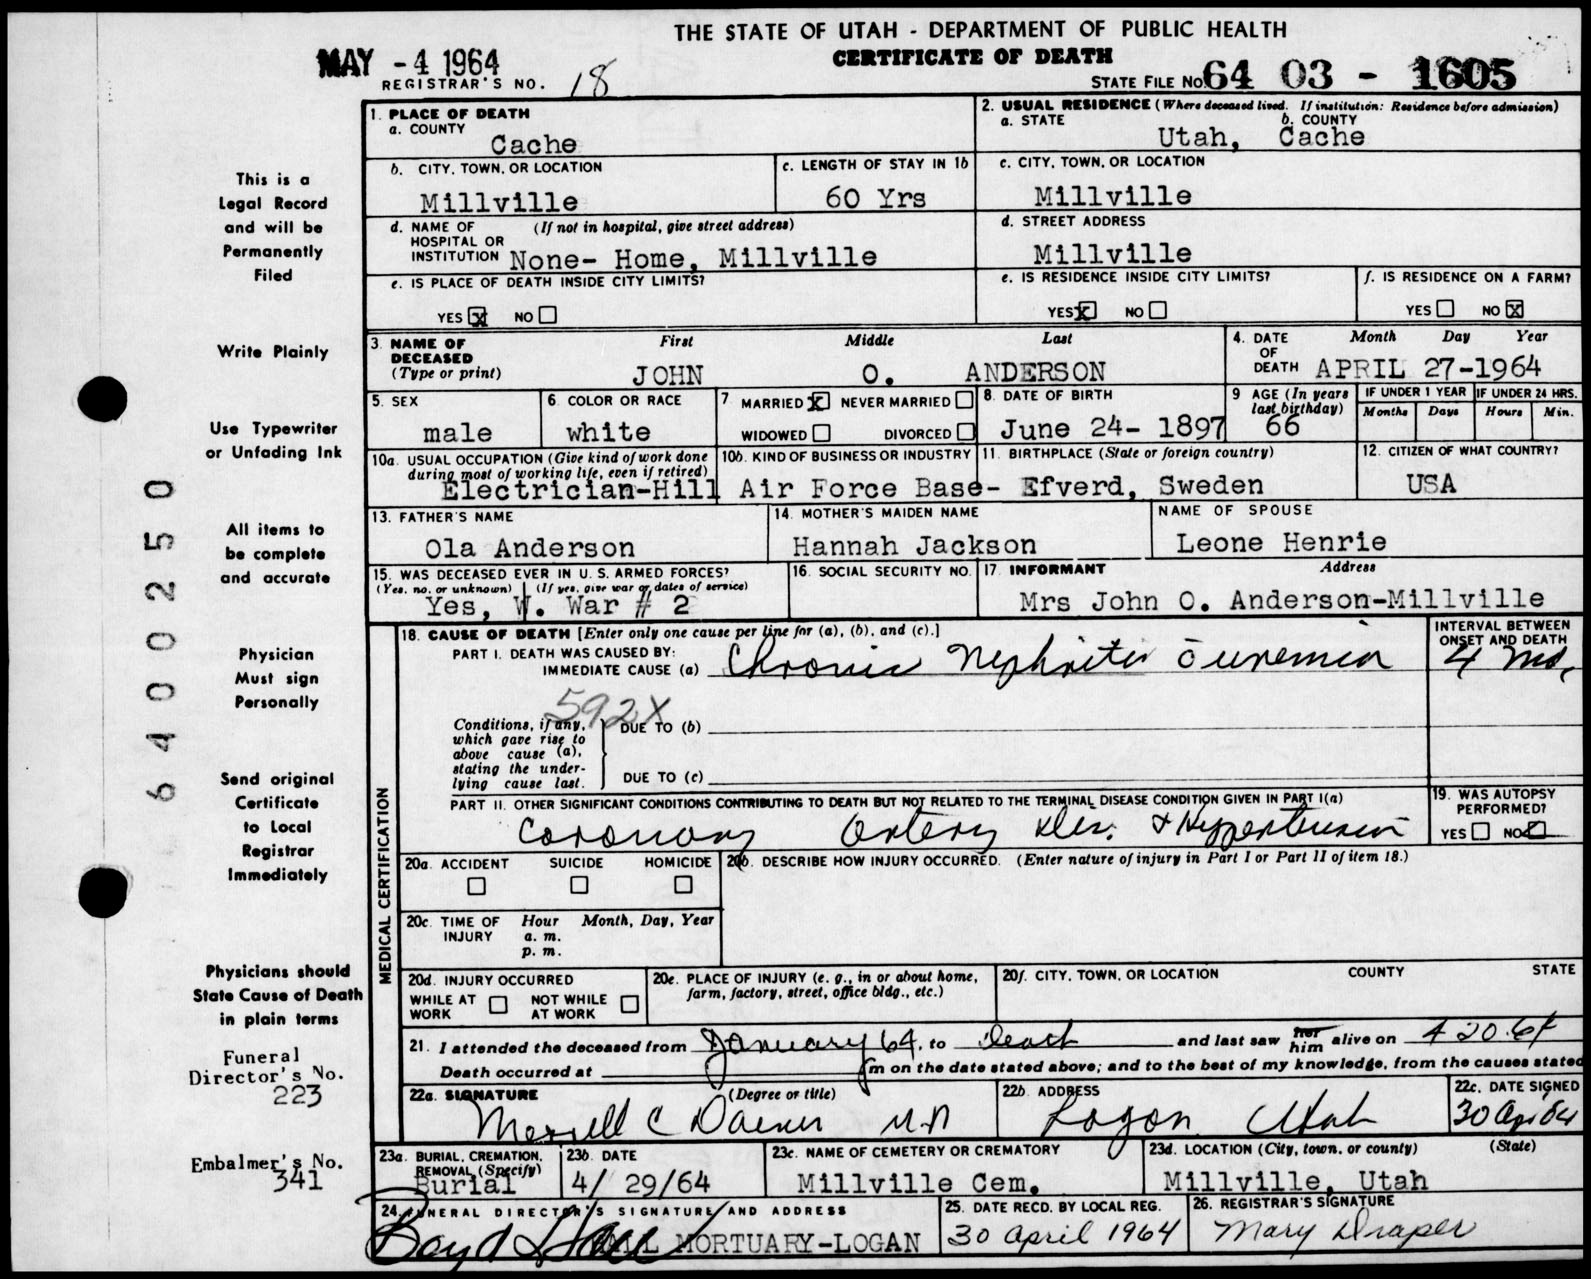 THE STATE OF UTAH - DEPARTMENT OF PUBLIC HEALTH
CERTIFICATE OF DEATH
MAY - 4 1964
REGISTRAR'S NO. 18
STATE FILE NO. 64 03 - 1605
1. PLACE OF DEATH
a. COUNTY
Cache
2. USUAL RESIDENCE (Where deceased lived. If institution: Residence before admission)
a. STATE b. COUNTY
Utah, Cache
b. CITY, TOWN, OR LOCATION
Millville
c. LENGTH OF STAY IN 1b
60 Yrs
c. CITY, TOWN, OR LOCATION
Millville
d. NAME OF HOSPITAL OR INSTITUTION (If not in hospital, give street address)
None- Home, Millville
d. STREET ADDRESS
Millville
e. IS PLACE OF DEATH INSIDE CITY LIMITS?
YES X NO
e. IS RESIDENCE INSIDE CITY LIMITS?
YES X NO
f. IS RESIDENCE ON A FARM?
YES NO X
3. NAME OF DECEASED (Type or print)
First Middle Last
JOHN O. ANDERSON
4. DATE OF DEATH Month Day Year
APRIL 27-1964
5. SEX
male
6. COLOR OR RACE
white
7 MARRIED X NEVER MARRIED
WIDOWED DIVORCED
8. DATE OF BIRTH
June 24- 1897
9 AGE (In years last birthday)
66
IF UNDER 1 YEAR IF UNDER 24 HRS.
Months Days Hours Min.
10a. USUAL OCCUPATION (Give kind of work done during most of working life, even if retired)
10b. KIND OF BUSINESS OR INDUSTRY
11. BIRTHPLACE (State or foreign country)
12. CITIZEN OF WHAT COUNTRY?
Electrician-Hill Air Force Base- Efverd, Sweden USA
13. FATHER'S NAME
Ola Anderson
14. MOTHER'S MAIDEN NAME
Hannah Jackson
NAME OF SPOUSE
Leone Henrie
15. WAS DECEASED EVER IN U. S. ARMED FORCES?
(Yes, no, or unknown) (If yes, give war or dates of service)
Yes, W. War # 2
16. SOCIAL SECURITY NO.
17. INFORMANT Address
Mrs John O. Anderson-Millville
MEDICAL CERTIFICATION
18. CAUSE OF DEATH [Enter only one cause per line for (a), (b), and (c).]
INTERVAL BETWEEN ONSET AND DEATH
PART I. DEATH WAS CAUSED BY:
IMMEDIATE CAUSE (a) Chronic Nephritis c̄ uremia 4 mos,
592X
Conditions, if any, which gave rise to above cause (a), stating the underlying cause last.
DUE TO (b)
DUE TO (c)
PART II. OTHER SIGNIFICANT CONDITIONS CONTRIBUTING TO DEATH BUT NOT RELATED TO THE TERMINAL DISEASE CONDITION GIVEN IN PART I(a)
Coronary Artery & Hypertension
19. WAS AUTOPSY PERFORMED?
YES NO
20a. ACCIDENT SUICIDE HOMICIDE
20b. DESCRIBE HOW INJURY OCCURRED. (Enter nature of injury in Part I or Part II of item 18.)
20c. TIME OF INJURY Hour Month, Day, Year
a. m.
p. m.
20d. INJURY OCCURRED
WHILE AT WORK NOT WHILE AT WORK
20e. PLACE OF INJURY (e. g., in or about home, farm, factory, street, office bldg., etc.)
20f. CITY, TOWN, OR LOCATION COUNTY STATE
21. I attended the deceased from January 64, to Death and last saw her him alive on 4 20 64
Death occurred at m on the date stated above; and to the best of my knowledge, from the causes stated
22a. SIGNATURE (Degree or title)
Merrill C Daines M.D
22b. ADDRESS
Logan Utah
22c. DATE SIGNED
30 Apr 64
23a. BURIAL, CREMATION, REMOVAL (Specify)
Burial
23b. DATE
4/ 29/64
23c. NAME OF CEMETERY OR CREMATORY
Millville Cem.
23d. LOCATION (City, town, or county) (State)
Millville, Utah
24. FUNERAL DIRECTOR'S SIGNATURE AND ADDRESS
Boyd Hall
HALL MORTUARY-LOGAN
25. DATE RECD. BY LOCAL REG.
30 April 1964
26. REGISTRAR'S SIGNATURE
Mary Draper
This is a
Legal Record
and will be
Permanently
Filed
Write Plainly
Use Typewriter
or Unfading Ink
All items to
be complete
and accurate
Physician
Must sign
Personally
Send original
Certificate
to Local
Registrar
Immediately
Physicians should
State Cause of Death
in plain terms
Funeral
Director's No.
223
Embalmer's No.
341
6400250